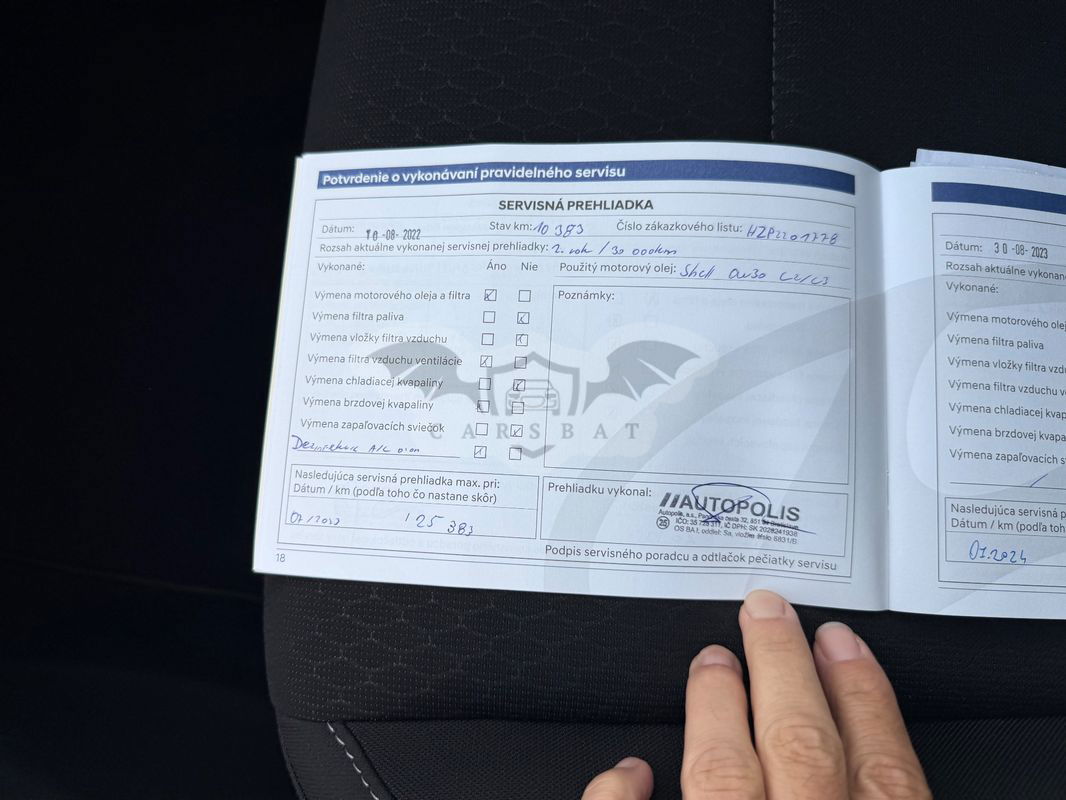 Potvrdenie o vykonávaní pravidelného servisu
SERVISNÁ PREHLIADKA
Dátum: 10-08-2022 Stav km: 10 383 Číslo zákazkového listu: HZP2201778
Rozsah aktuálne vykonanej servisnej prehliadky: 2. rok / 30 000km
Vykonané: Áno Nie Použitý motorový olej: Shell 0w30 C2/C3
Výmena motorového oleja a filtra
Poznámky:
Výmena filtra paliva
Výmena vložky filtra vzduchu
Výmena filtra vzduchu ventilácie
Výmena chladiacej kvapaliny
Výmena brzdovej kvapaliny
Výmena zapaľovacích sviečok
CARSBAT
Dezinfekcia A/C
Nasledujúca servisná prehliadka max. pri:
Dátum / km (podľa toho čo nastane skôr)
07/2023 25 383
Prehliadku vykonal:
AUTOPOLIS
Autopolis, a.s., Panónska cesta 32, 851 04 Bratislava
25 IČO: 35 723 317, IČ DPH: SK 2028241938
OS BA I, oddiel: Sa, vložka číslo 6831/B
Podpis servisného poradcu a odtlačok pečiatky servisu
18
Dátum: 30-08-2023
Rozsah aktuálne vykonan
Vykonané:
Výmena motorového olej
Výmena filtra paliva
Výmena vložky filtra vzd
Výmena filtra vzduchu v
Výmena chladiacej kvap
Výmena brzdovej kvapa
Výmena zapaľovacích s
Nasledujúca servisná p
Dátum / km (podľa toh
07.2024